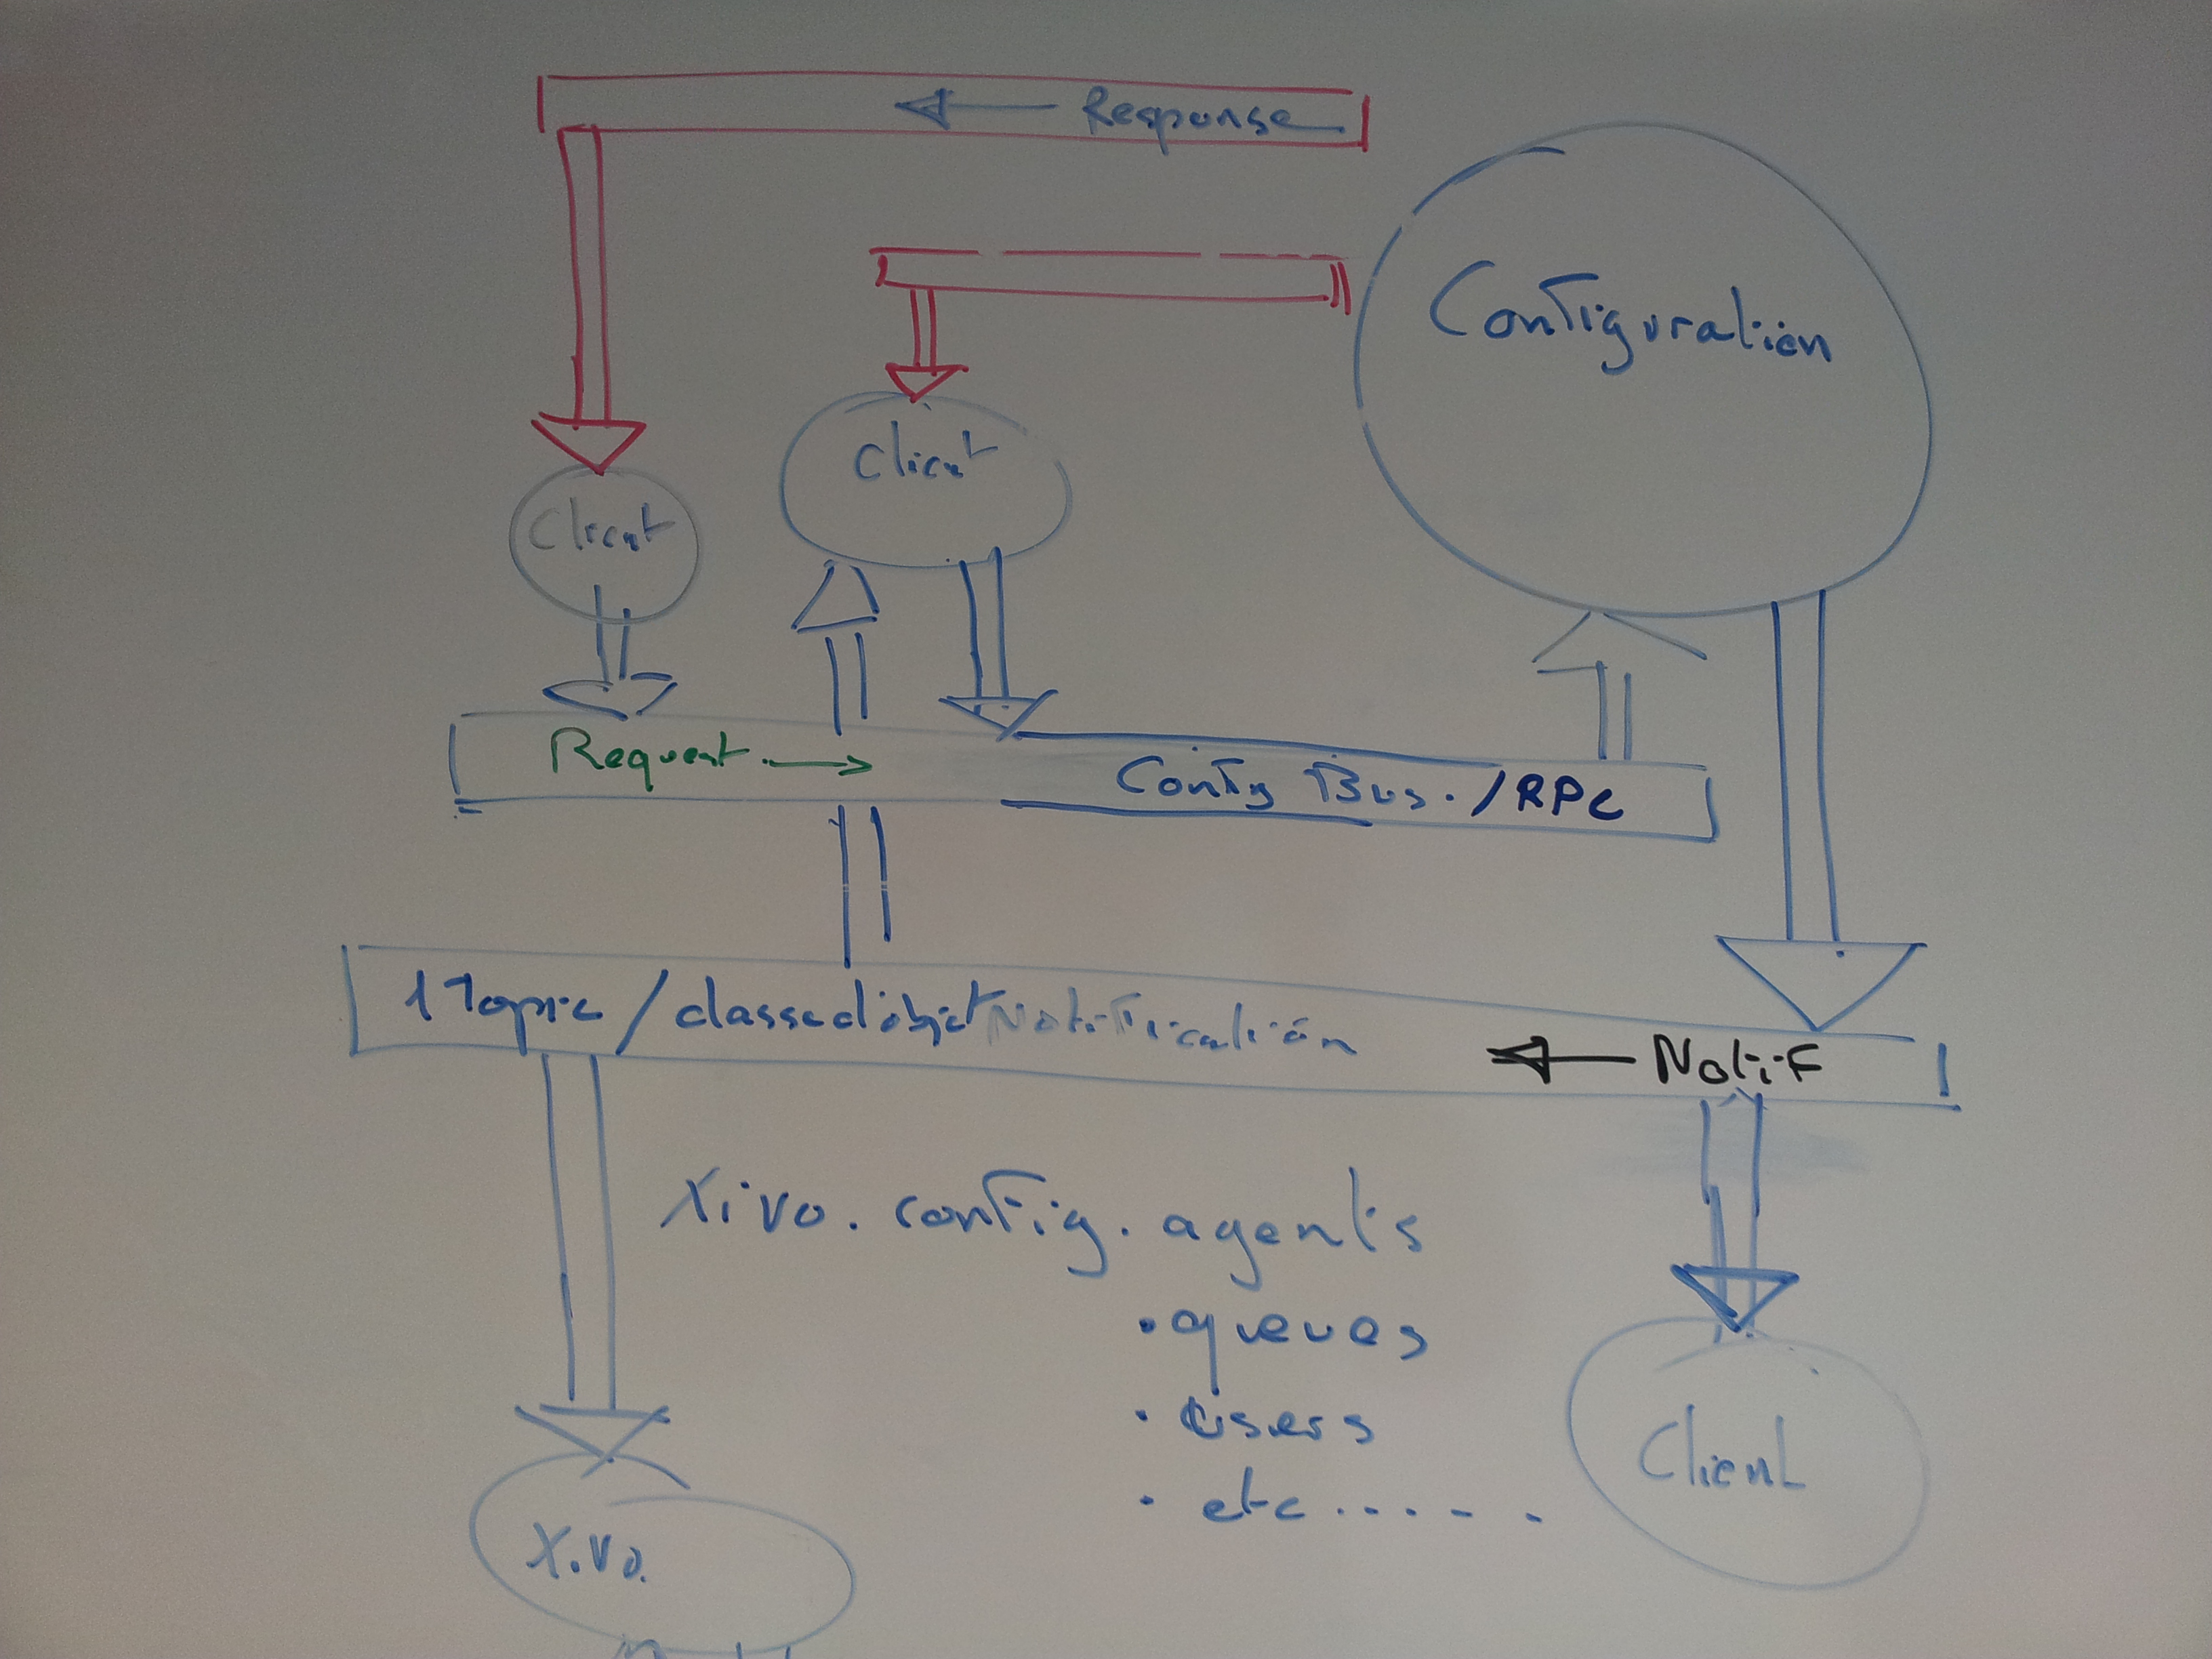 Response
Configuration
Client
Client
Request
Config Bus. / RPC
1 Topic / classe d'objet Notification
Notif
Xivo. config. agents
. queues
. users
. etc......
Client
Xivo.